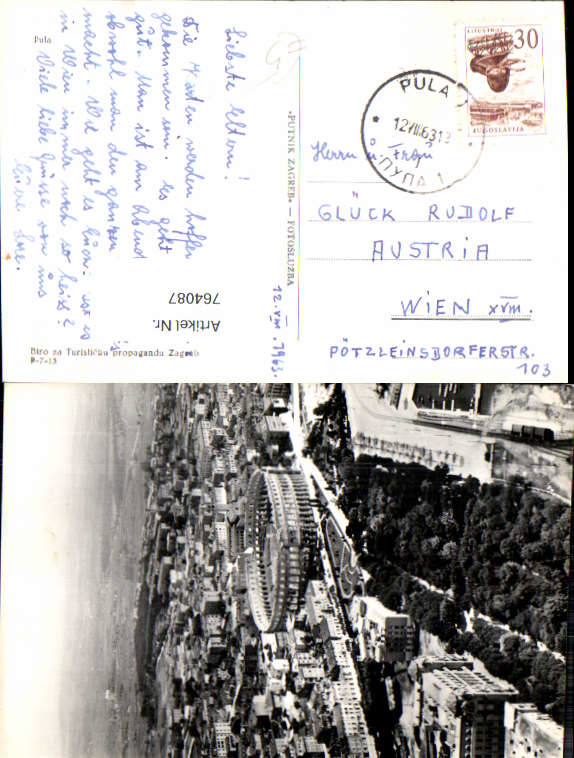 Pula
Liebste Eltern!
Die Karten werden hoffen
gekommen sein. Es geht
gut. Man ist am Abend
obwohl man den ganzen
macht. Wie geht es Euch. Ist es
in Wien immer noch so heiß?
Viele liebe Grüße von uns
Eure
Biro za Turističku propagandu Zagreb
P-7-15
Artikel Nr. 764087
„PUTNIK ZAGREB“ — FOTOSLUŽBA
12. VIII. 1963.
30
JUGOSLAVIJA
PULA 1
12 VIII 63 19
ПУЛА 1
Herrn u. Frau
GLÜCK RUDOLF
AUSTRIA
WIEN XVIII.
PÖTZLEINSDORFERSTR.
103